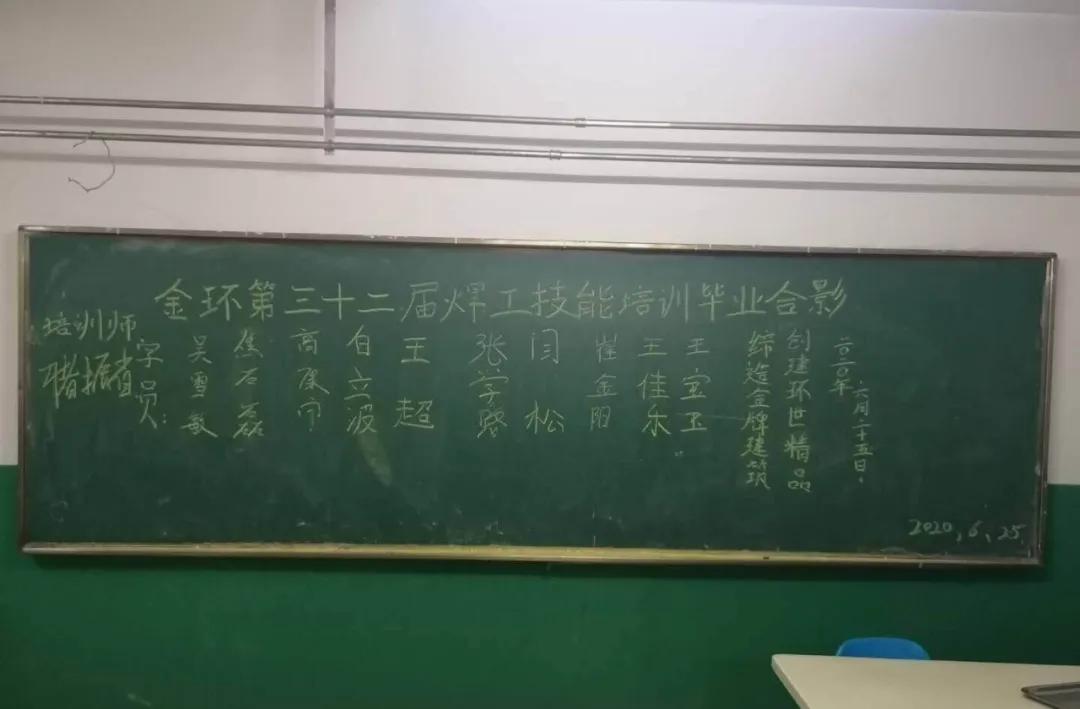 金环第三十二届焊工技能培训毕业合影
培训师
学员：
吴雪敏
焦石磊
高
白立波
王超
张学
闫松
崔金阳
王佳乐
王宝玉
缔造金牌建筑
创建环世精品
二〇二〇年
六月二十五日。
2020.6.25